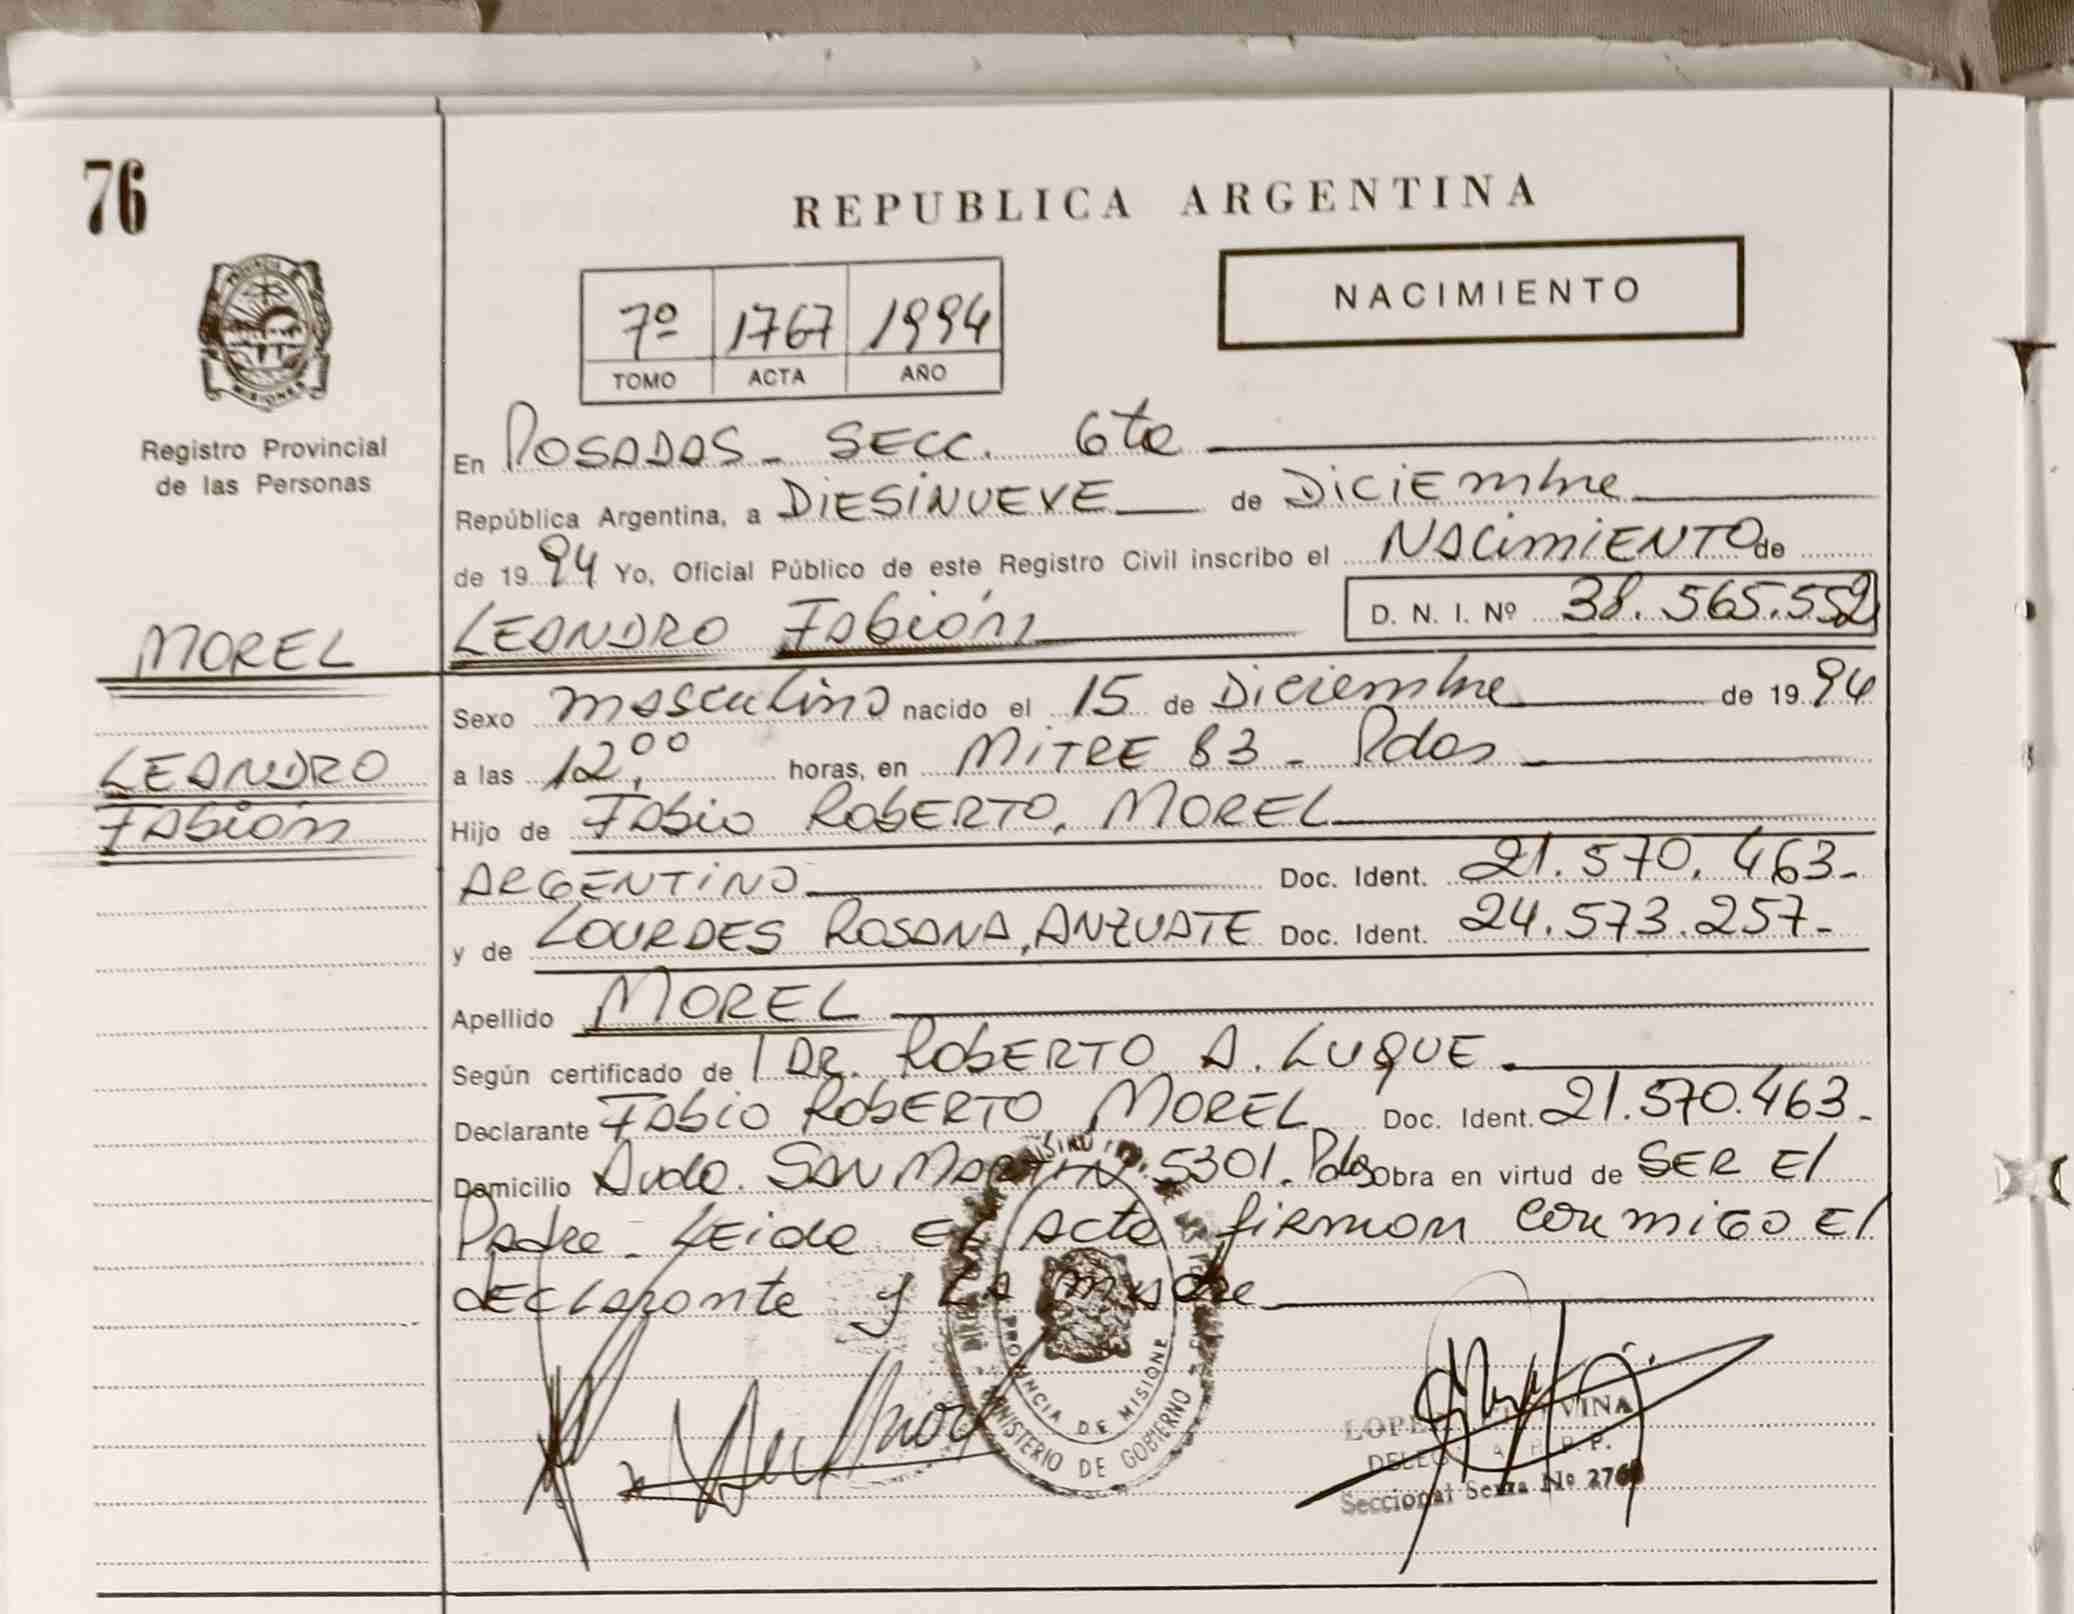 76
REPUBLICA ARGENTINA
NACIMIENTO
7º 1767 1994
TOMO ACTA AÑO
Registro Provincial
de las Personas
En POSADAS - SECC. 6ta
República Argentina, a DIESINUEVE de DICIEmbre
de 1994 Yo, Oficial Público de este Registro Civil inscribo el NACimiENTO de
LEANDRO FAbián D. N. I. Nº 38.565.552
MOREL
LEANDRO
FAbián
Sexo masculino nacido el 15 de Diciembre de 1994
a las 12,00 horas, en MITRE 83 - Pdas
Hijo de FAbio RObERTO, MOREL
ARGENTINO Doc. Ident. 21.570.463-
y de LOURDES ROSANA, ANZUATE Doc. Ident. 24.573.257-
Apellido MOREL
Según certificado de l DR. RObERTO A. LUQUE
Declarante FAbio RObERTO MOREL Doc. Ident. 21.570.463-
Domicilio Avda. SAN MARTIN 5301. Pdas Obra en virtud de SER El
Padre - LEida El Acta firman conmigo El
dECLARante y LA madre
PROVINCIA DE MISIONE
MINISTERIO DE GOBIERNO
Seccional Sexta Nº